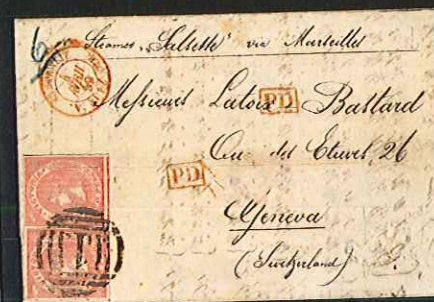 6
Steamer "Salsette" via Marseilles
Messieurs Latoix Bastard
PD
Rue des Etuves, 26
PD
Geneva
(Switzerland)